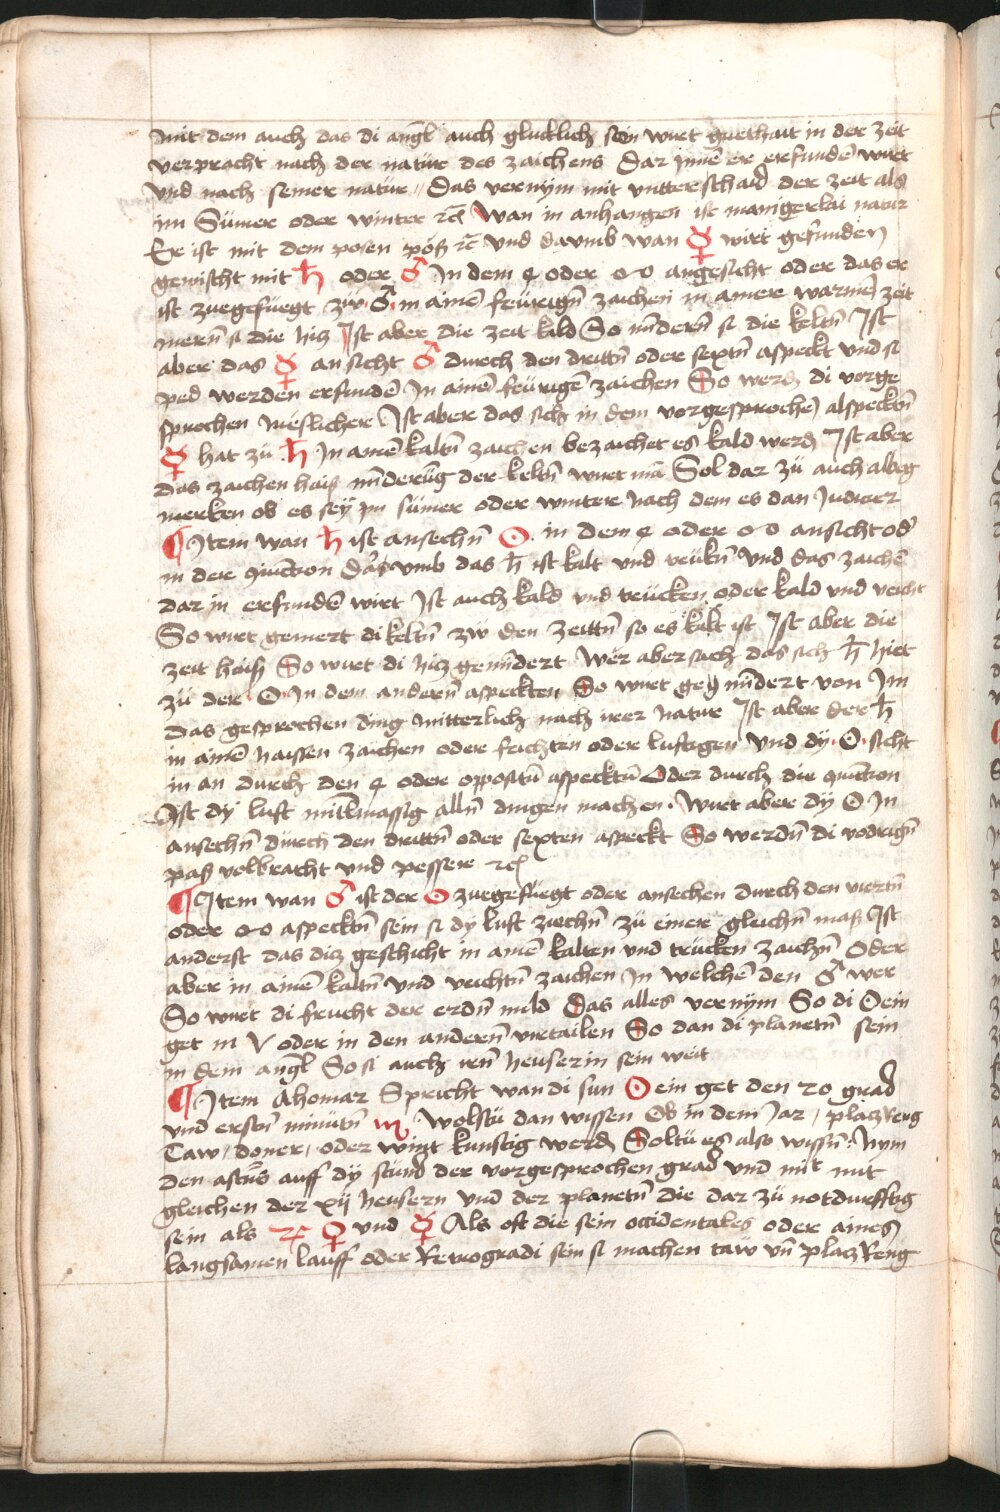 mit dem auch das di angl auch glucklich sein wirt guethait in der zeit
verpracht nach der natür des zaichens Dar jnnē er erfundē wirt
und nach seiner natür Das vernÿm mit unterschaid der zeit als
im Sümer oder winter ⁊c̄ Wan in anhangen ist manigerlai natur
Er ist mit dem posen pöß ⁊c̄ Und darumb wan ☿ wirt gefunden
gemischt mit ♄ oder ♂ In dem □ oder ☍ angesicht oder das er
ist zuegefüegt zw ♂ in ainē feürign̄ zaichen in ainer warmē zeit
mern̄ si die hicz Ist aber die zeit kald So mīdern̄ si die keltn̄ Ist
aber das ☿ ansicht ♂ durch den drittn̄ oder sextn̄ aspeckt und si
ped werden erfundē In ainē feürigē zaichen So werdn̄ di vorge
sprochen Meslicher Ist aber das sich in dem vorgesprochē aspecktn̄
☿ hat zü ♄ In ainē kaltn̄ zaichen bezaichet es kald werdn̄ Ist aber
das zaichen haiß mīderüg der keltn̄ wirt mā Sol dar zü auch albeg
merken ob es seÿ im sümer oder winter nach dem es dan Judicir
¶ Item wan ♄ ist ansechn̄ ☉ in dem □ oder ☍ ansicht od̄
in der 9iūction Darumb das ♄ ist kalt und trükn̄ Und das zaichē
dar in erfundē wirt Ist auch kald und trücken oder kald und veicht
So wirt gemert di keltn̄ zw den zeittn̄ so es kalt ist Ist aber die
zeit haiß So wirt di hicz gemīdert Wer aber sach das sich ♄ hiet
zü der ☉ In dem andern̄ aspeckten So wirt gemīdert von Im
das gesprochen ding mitterlich nach irer natur Ist aber der ♄
in ainē haissen zaichen oder feichten oder luftigen Und dÿ ☉ sicht
in an durch den □ oder oppositū aspecktū Oder durch die 9iūction
Ist dÿ luft mitlmassig alln̄ dingen machen Wirt aber dÿ ☉ In
ansechn̄ durch den drittn̄ oder sexten aspeckt So werdn̄ di vodrign̄
paß volbracht und pesser ⁊c̄
¶ Item wan ♂ ist der ☉ zuegefüegt oder ansechen durch den viertn̄
oder ☍ aspecktn̄ sein si dÿ luft ziechn̄ zü einer gleichn̄ maß Ist
anderst das dicz geschicht in ainē kalten und trücken zaichn̄ Oder
aber in ainē kaltn̄ und veichtn̄ zaichen In welchē den ♂ wer
So wirt di frucht der erdn̄ mild Das alles vernÿm So di ☉ ein
get in ♈ oder in den andern̄ virtailen So dan di planetn̄ sein
in dein angl So si auch irn̄ heuserin sein weit
¶ Item Ahomar Spricht wan di sun ☉ ein get den 20 grad
und erstn̄ minūtn̄ ♏ wolstü dan wissen Ob in dem Jar / placzreng
Taw / doner / oder wint kunftig werdn̄ Soltü es also wissn̄ : Nym
den ascn̄s auff dÿ stund der vorgesprochen grad und mit mit
gleichen der xij heusern und der planetn̄ die dar zü notdurfftig
sein als ♃ ♀ und ☿ Als oft die sein occidentales oder aines
langsamen lauff oder Retrogradi sein si machen taw un̄ placzReng